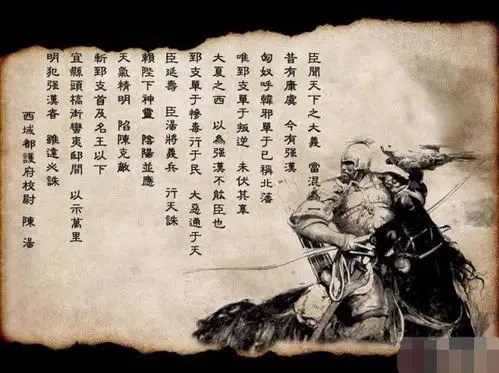 臣聞天下之大義 當混為一
昔有康虞 今有强漢
匈奴呼韓邪單于已稱北藩
唯郅支單于叛逆 未伏其辜
大夏之西 以為强漢不能臣也
郅支單于慘毒行于民 大惡通于天
臣延壽 臣湯將義兵 行天誅
賴陛下神靈 陰陽並應
天氣精明 陷陳克敵
斬郅支首及名王以下
宜縣頭槁街蠻夷邸間 以示萬里
明犯强漢者 雖遠必誅
西域都護府校尉 陳 湯